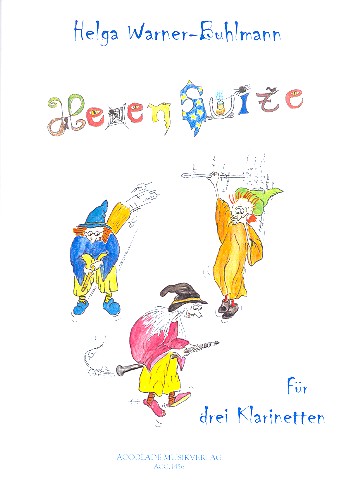 Helga Warner-Buhlmann
Hexen Suite
Für
drei Klarinetten
ACCOLADE MUSIKVERLAG